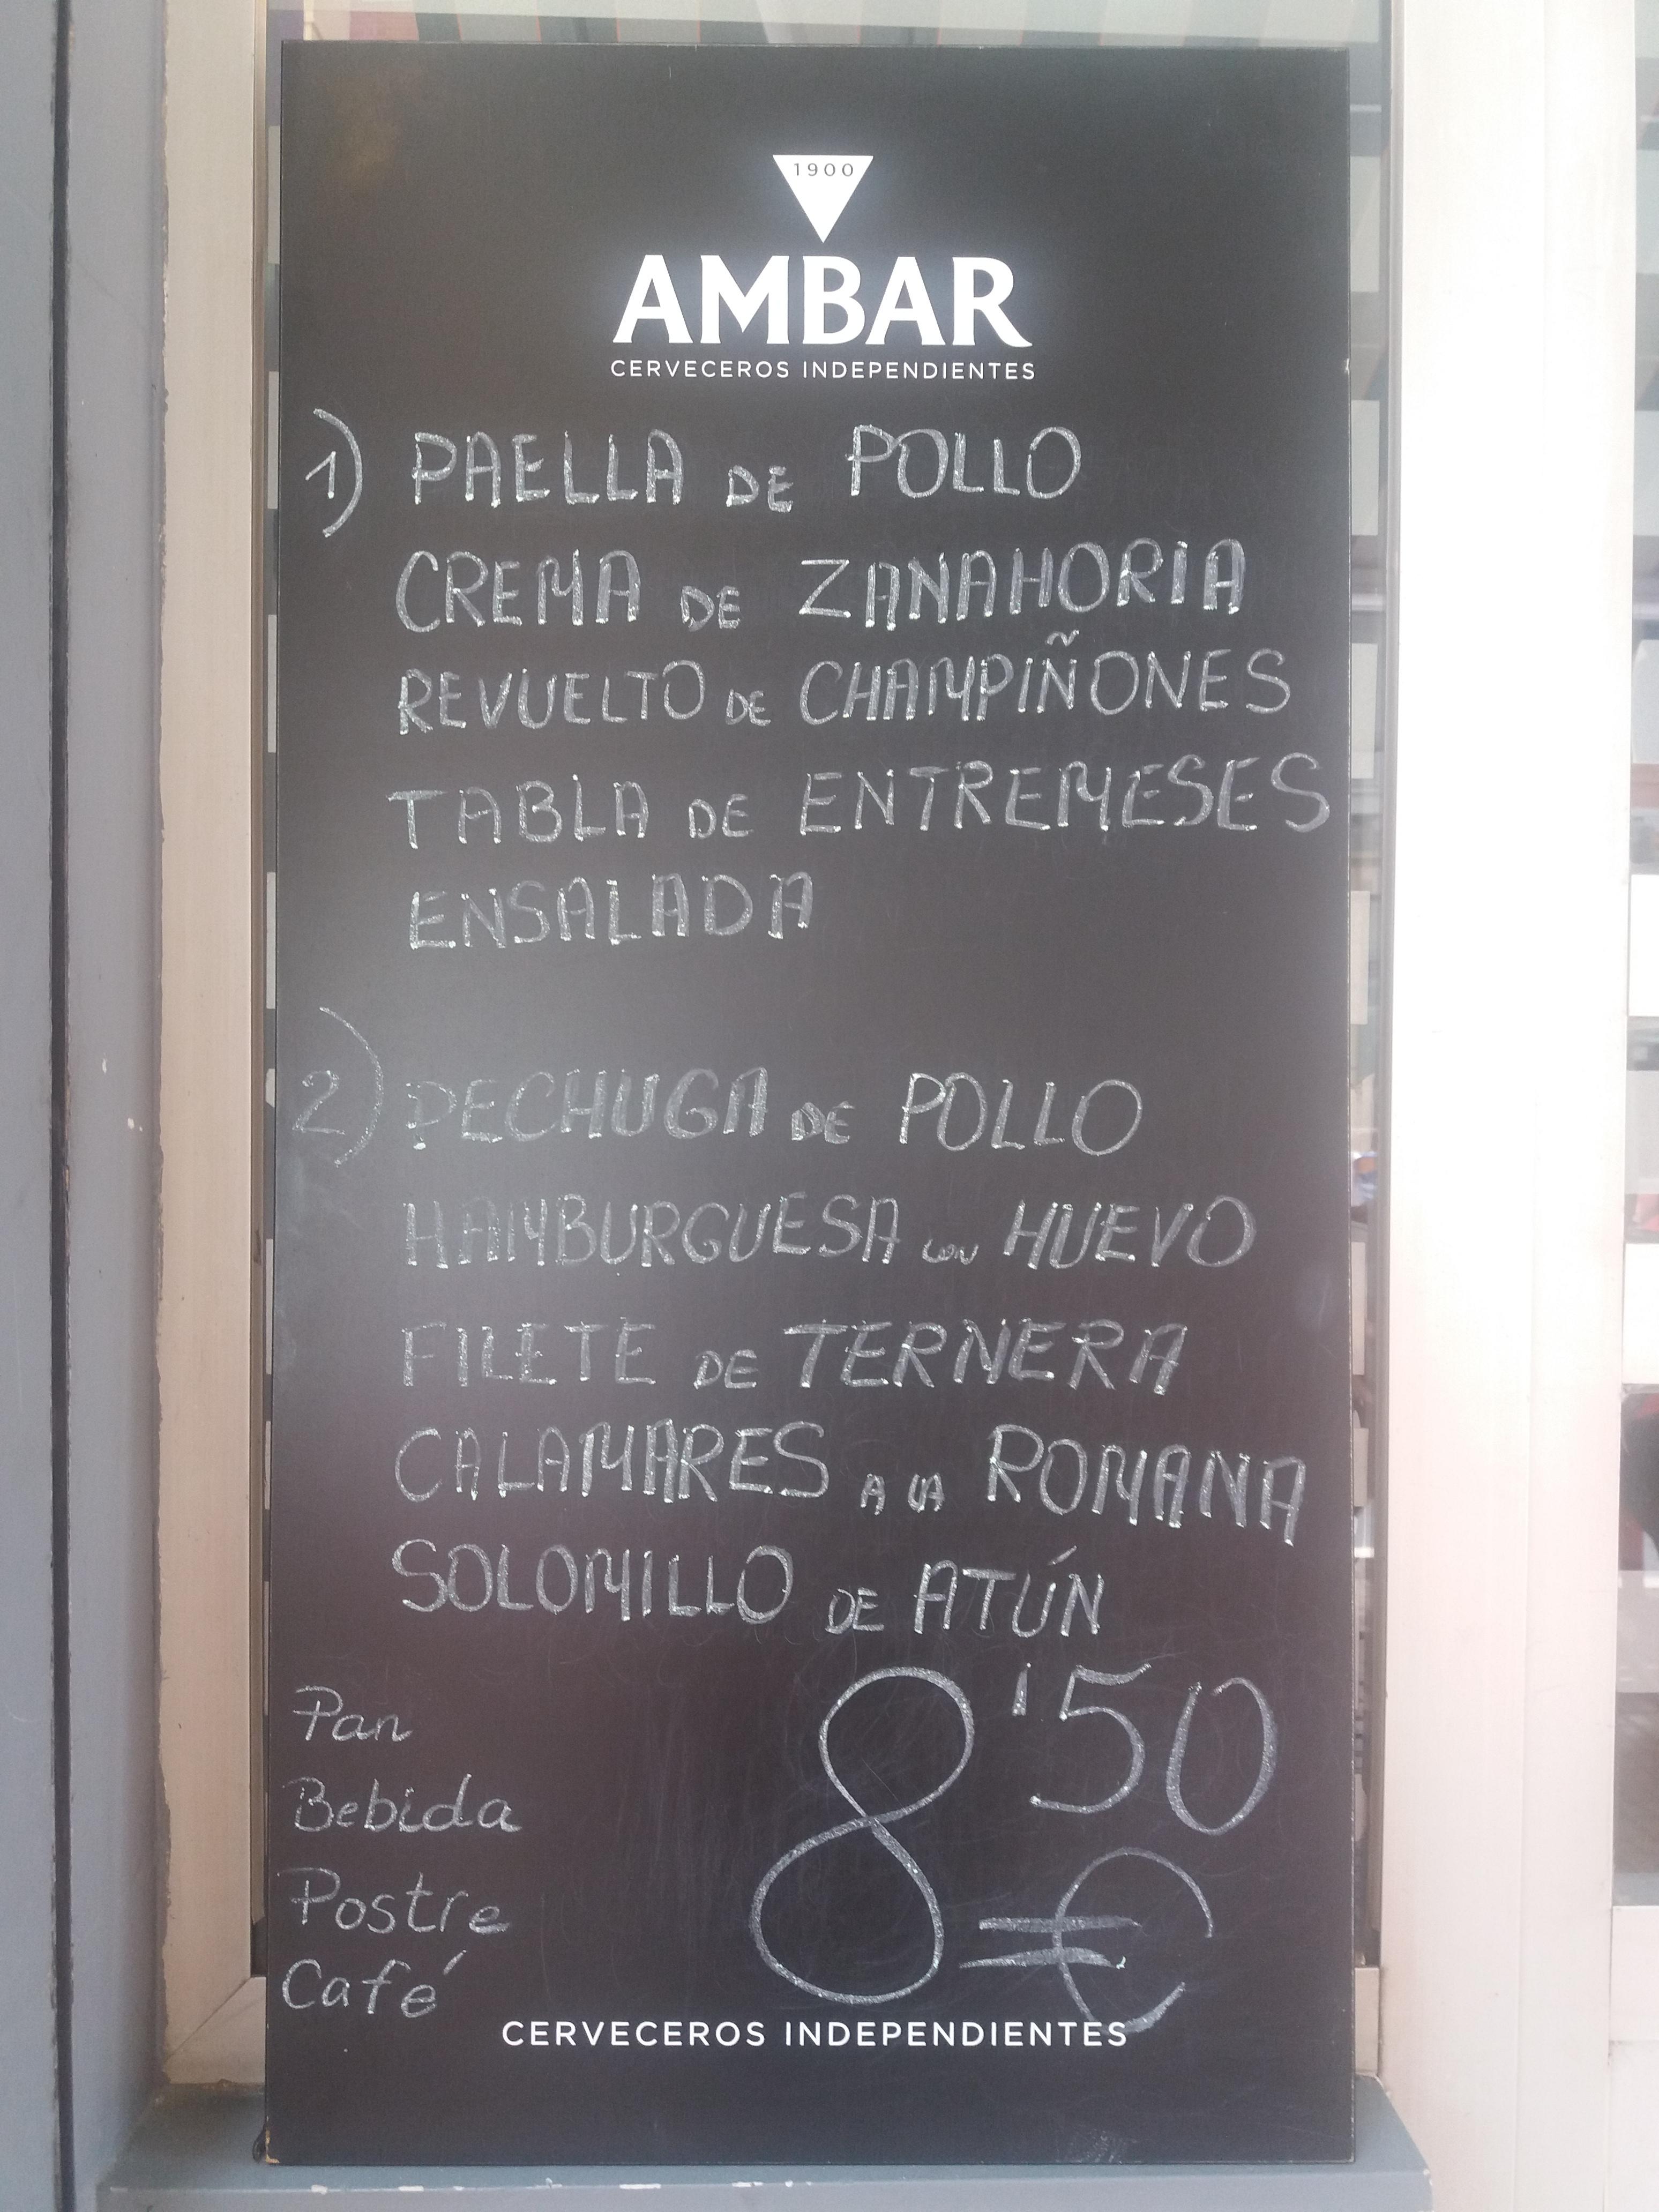 1900
AMBAR
CERVECEROS INDEPENDIENTES
1) PAELLA DE POLLO
CREMA DE ZANAHORIA
REVUELTO DE CHAMPIÑONES
TABLA DE ENTREMESES
ENSALADA
2) PECHUGA DE POLLO
HAMBURGUESA con HUEVO
FILETE DE TERNERA
CALAMARES A LA ROMANA
SOLOMILLO DE ATÚN
Pan
Bebida
Postre
Café
8'50
€
CERVECEROS INDEPENDIENTES